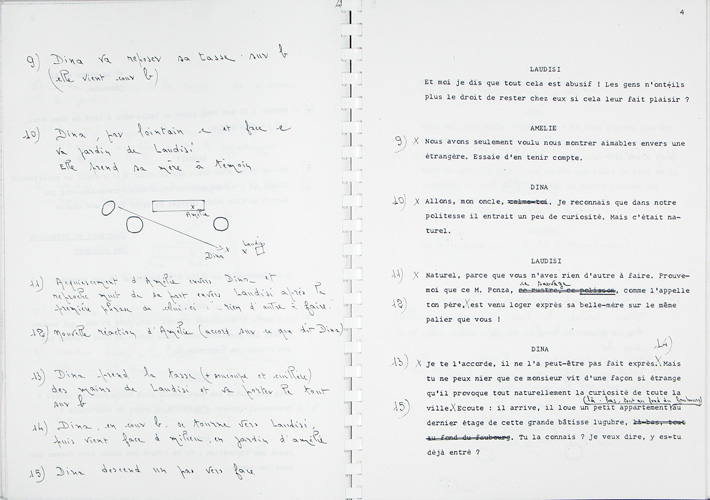 9) Dina va reposer sa tasse sur b
(elle vient sur b)
10) Dina, par lointain e et face e
va jardin de Laudisi
Elle prend sa mère à témoin
Amélie
Laudisi
Dina
11) Acquiescement d'Amélie envers Dina et
reproche muet de sa part envers Laudisi après la
première phrase de celui-ci : ..rien d'autre à faire.
12) Nouvelle réaction d'Amélie (accord sur ce que dit Dina)
13) Dina prend la tasse (+ soucoupe et cuillère)
des mains de Laudisi et va porter le tout
sur b
14) Dina, en cour b, se tourne vers Laudisi,
puis vient face à milieu, en jardin d'Amélie
15) Dina descend un pas vers face
4
LAUDISI
Et moi je dis que tout cela est abusif ! Les gens n'ont-ils
plus le droit de rester chez eux si cela leur fait plaisir ?
AMELIE
9) x Nous avons seulement voulu nous montrer aimables envers une
étrangère. Essaie d'en tenir compte.
DINA
10) x Allons, mon oncle, calme-toi. je reconnais que dans notre
politesse il entrait un peu de curiosité. Mais c'était na-
turel.
LAUDISI
11) x Naturel, parce que vous n'avez rien d'autre à faire. Prouve-
ce sauvage
moi que ce M. Ponza, ce rustre, ce polisson, comme l'appelle
12) ton père, x est venu loger exprès sa belle-mère sur le même
palier que vous !
DINA
14)
13) x Je te l'accorde, il ne l'a peut-être pas fait exprès. x Mais
tu ne peux nier que ce monsieur vit d'une façon si étrange
qu'il provoque tout naturellement la curiosité de toute la
(là-bas, tout au fond du faubourg)
15) ville. x Ecoute : il arrive, il loue un petit appartement au
dernier étage de cette grande bâtisse lugubre, là-bas, tout
au fond du faubourg. Tu la connais ? Je veux dire, y es-tu
déjà entré ?